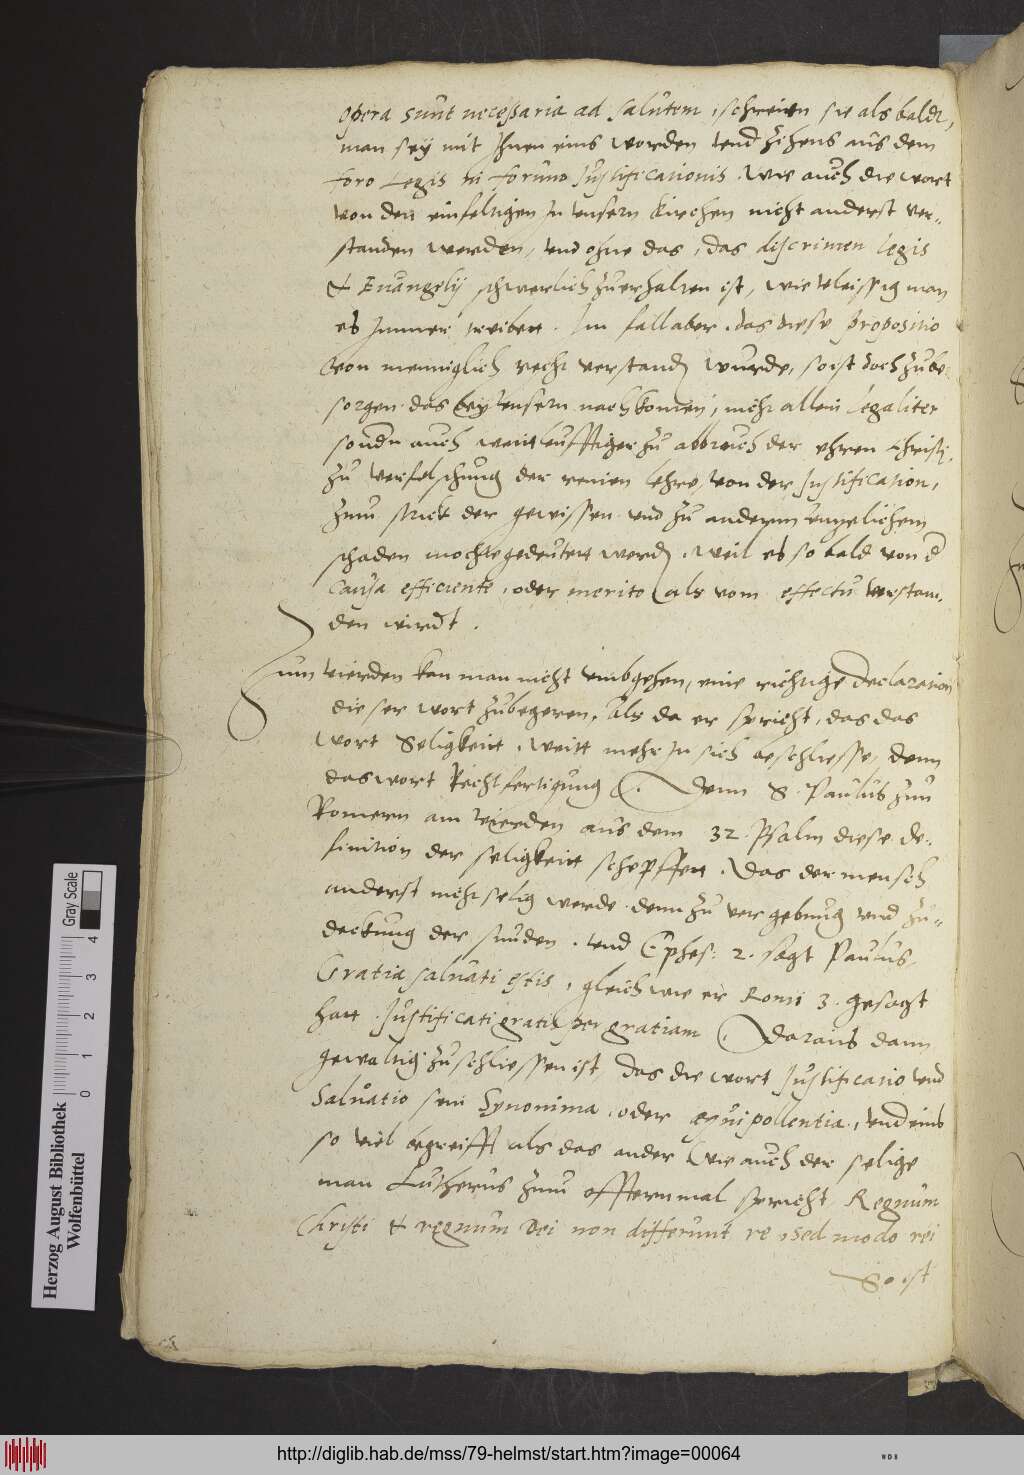 opera sunt necessaria ad salutem, schreien sie als baldt,
man sey mit Ihnen eins worden vnd zihens aus dem
foro Legis in forum Justificationis. Wie auch die wort
von den einfeltigen In vnsern Kirchen nicht anderst ver-
standen werden, vnd ohne das, das discrimen legis
& Euangelij schwerlich zuerhalten ist, wie vleissig man
es Immer treibett. Im fall aber, das diese propositio
von menniglich recht verstand wurde, so ist doch zube-
sorgen das bey vnsern nachkomen, nicht allein legaliter
sondn auch weitleufftiger zu abbruch der ehren Christi,
zu verfelschung der reinen lehre, von der Justification,
zum strick der gewissen vnd zu anderm
schaden mochte gedeutett werd, weil es so bald von d
causa efficiente, oder merito als vom effectu verstan-
den wirdt.
Zum vierden kan man nicht vmbgehen, eine richtige declaration
dieser wort zubegeren, Als da er spricht, das das
wort Seligkeit, weitt mehr In sich beschliesse, denn
das wort Rechtfertigung. Denn S. Paulus zun
Romern am vierden aus dem 32. Psalm diese de-
finition der seligkeitt schepffett. Das der mensch
anderst nicht selig werde denn zu vergebung vnd zu-
deckung der sunden. vnd Ephes: 2. sagt Paulus
Gratia saluati estis, gleich wie er Rom 3. gesagt
hatt. Justificati gratis per gratiam. Daraus dann
gewaltig zuschliessen ist, das die wort Justificatio vnd
Saluatio sein Synonima, oder equipollentia, vnd eins
so viel begreifft als das ander, Wie auch der selige
man Lutherus zum offternmal spricht, Regnum
Christi & regnum Dei non differunt re, sed modo rei
So ist
Herzog August Bibliothek
Wolfenbüttel
0 1 2 3 4
Gray Scale
http://diglib.hab.de/mss/79-helmst/start.htm?image=00064